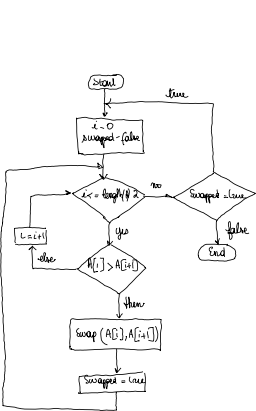 Start
true
i=0
swapped=false
i<= length(A)-2
no
Swapped=true
yes
false
i=i+1
else
A[i]>A[i+1]
End
then
Swap (A[i],A[i+1])
Swapped=true